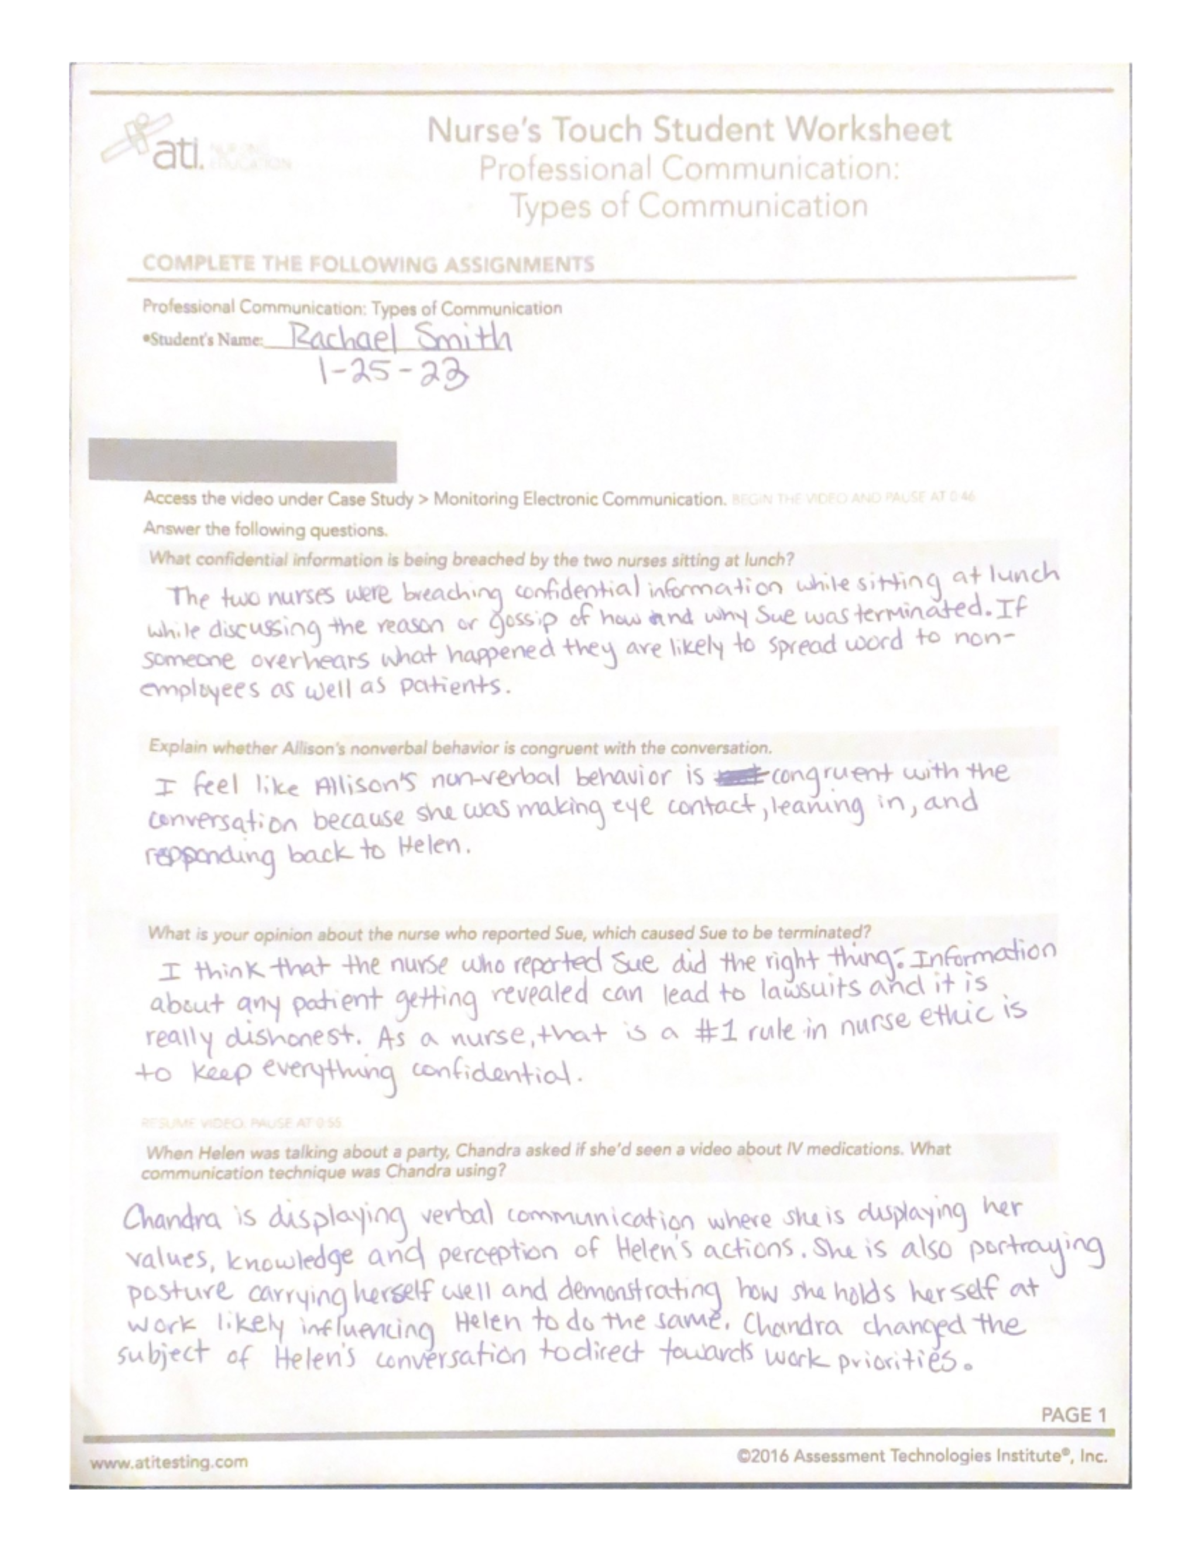 ati. NURSING EDUCATION
Nurse's Touch Student Worksheet
Professional Communication:
Types of Communication
COMPLETE THE FOLLOWING ASSIGNMENTS
Professional Communication: Types of Communication
•Student's Name: Rachael Smith
1-25-23
Access the video under Case Study > Monitoring Electronic Communication. BEGIN THE VIDEO AND PAUSE AT 0:46
Answer the following questions.
What confidential information is being breached by the two nurses sitting at lunch?
The two nurses were breaching confidential information while sitting at lunch
while discussing the reason or gossip of how and why Sue was terminated. If
someone overhears what happened they are likely to spread word to non-
employees as well as patients.
Explain whether Allison's nonverbal behavior is congruent with the conversation.
I feel like Allison's non-verbal behavior is congruent with the
conversation because she was making eye contact, leaning in, and
responding back to Helen.
What is your opinion about the nurse who reported Sue, which caused Sue to be terminated?
I think that the nurse who reported Sue did the right thing. Information
about any patient getting revealed can lead to lawsuits and it is
really dishonest. As a nurse, that is a #1 rule in nurse ethic is
to keep everything confidential.
RESUME VIDEO. PAUSE AT 0:55
When Helen was talking about a party, Chandra asked if she'd seen a video about IV medications. What
communication technique was Chandra using?
Chandra is displaying verbal communication where she is displaying her
values, knowledge and perception of Helen's actions. She is also portraying
posture carrying herself well and demonstrating how she holds herself at
work likely influencing Helen to do the same. Chandra changed the
subject of Helen's conversation to direct towards work priorities.
PAGE 1
www.atitesting.com
©2016 Assessment Technologies Institute®, Inc.